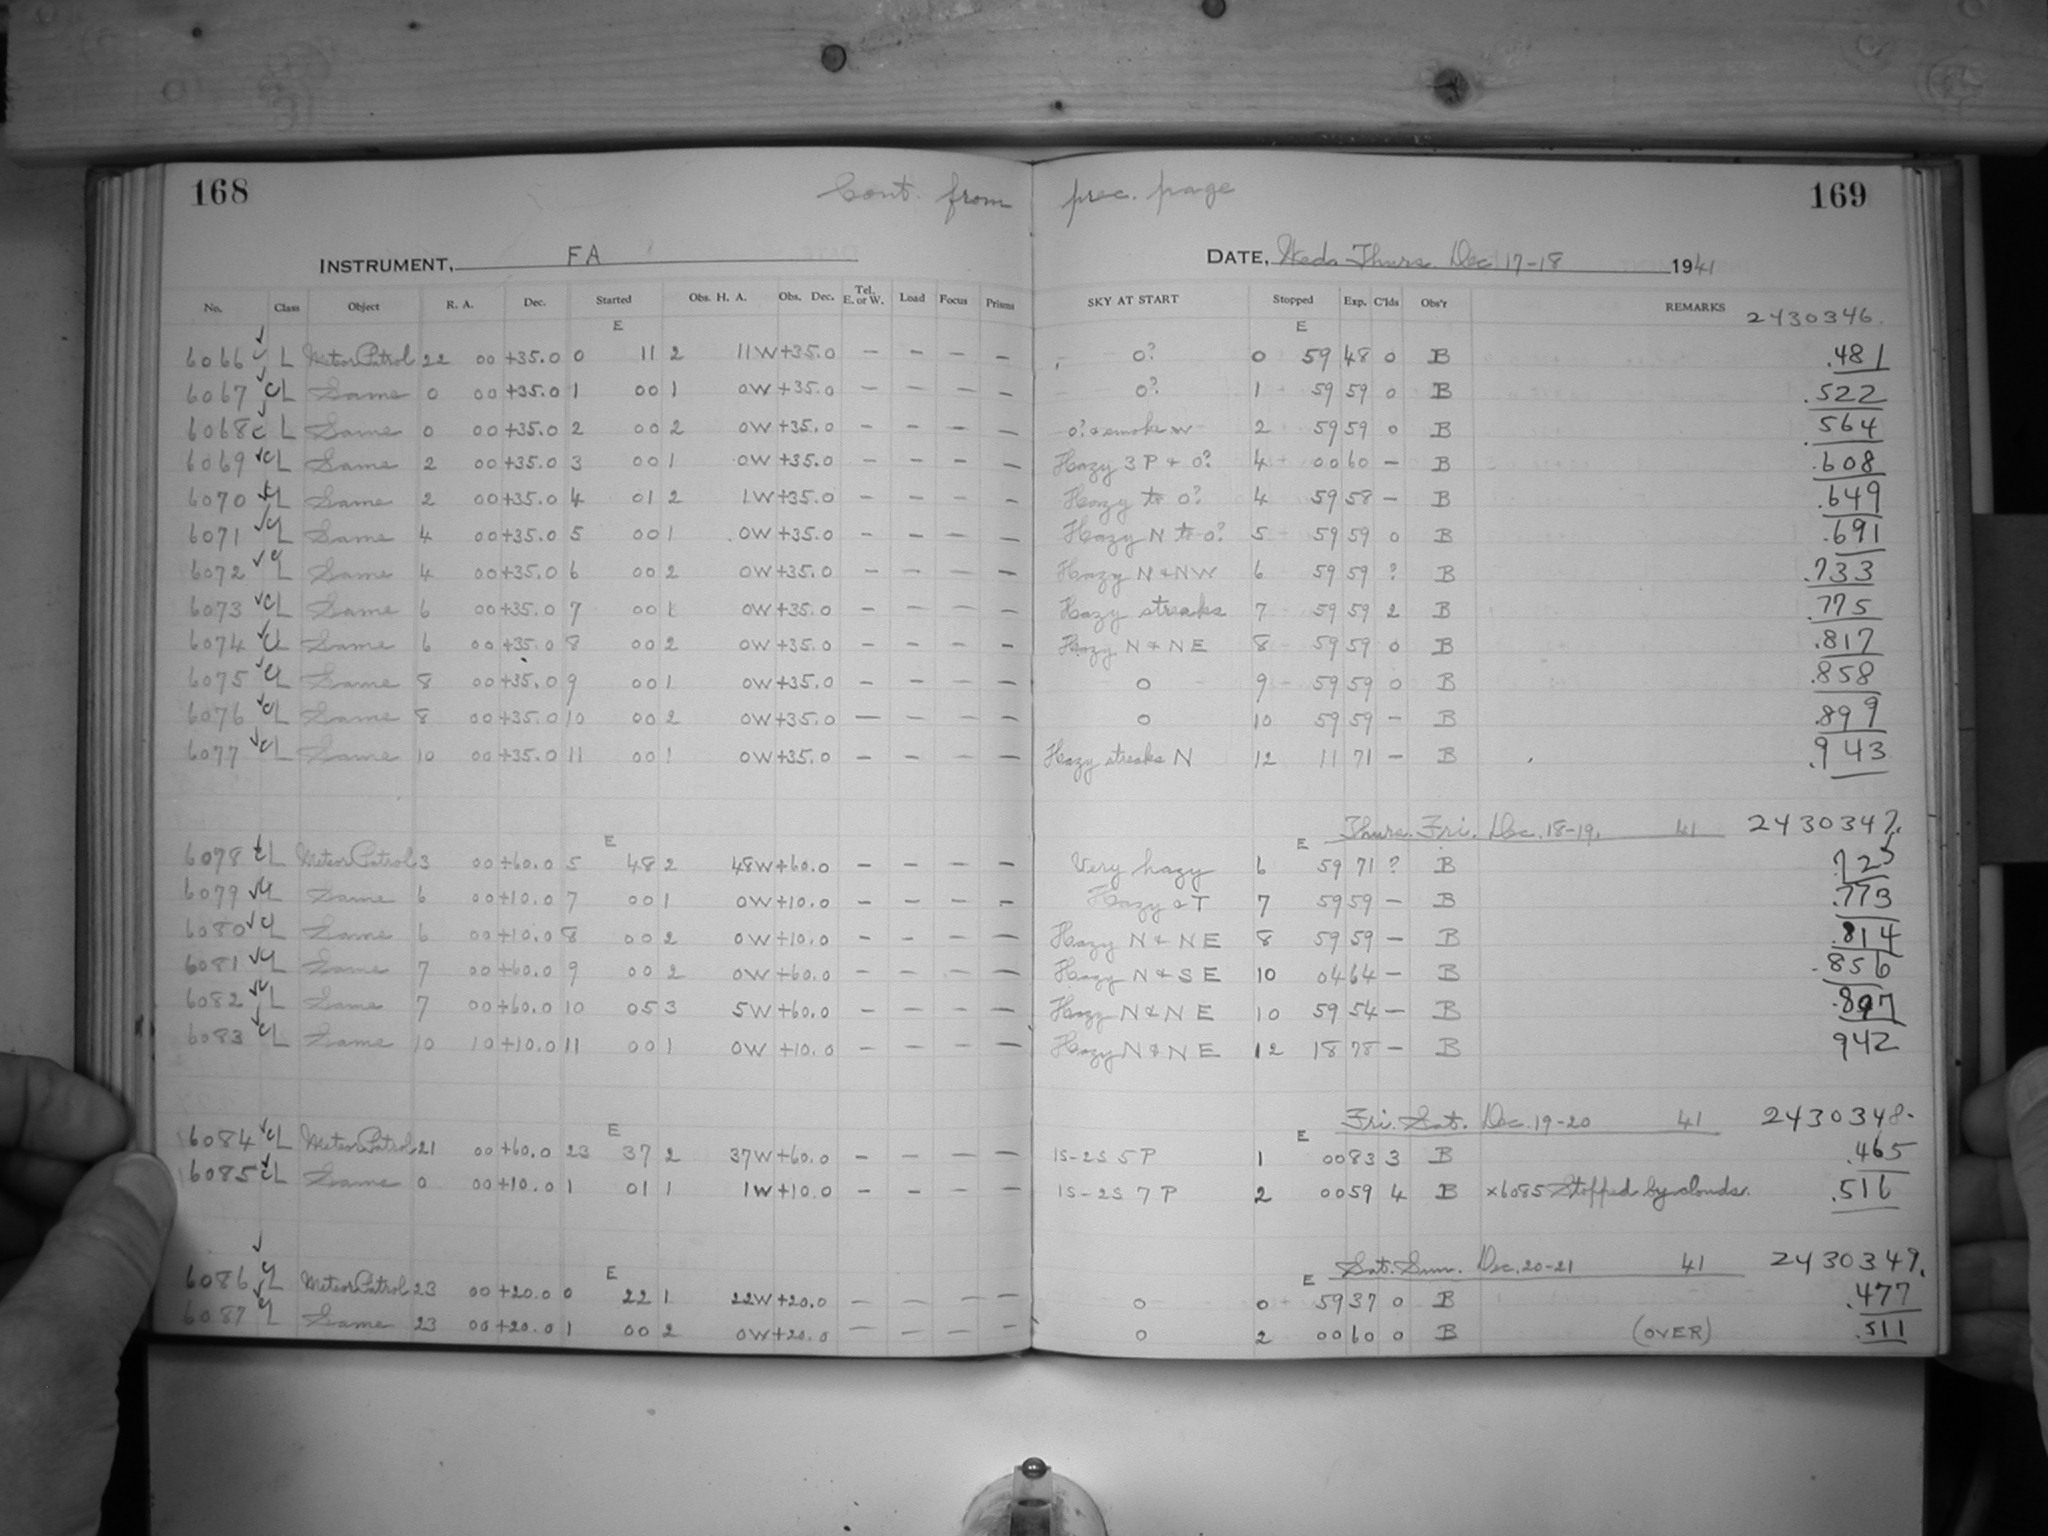 168 Cont. from prec. page 169
INSTRUMENT, FA DATE, Weds-Thurs. Dec 17-18 1941
No. Class Object R. A. Dec. Started Obs. H. A. Obs. Dec. Tel. E. or W. Load Focus Prisms SKY AT START Stopped Exp. C'lds Obs'r REMARKS 2430346.
E E
6066 L Meteor Patrol 22 00 +35.0 0 11 2 11W +35.0 – – – – 0? 0 59 48 0 B .481
6067 CL Same 0 00 +35.0 1 00 1 0W +35.0 – – – – 0? 1 59 59 0 B .522
6068 c L Same 0 00 +35.0 2 00 2 0W +35.0 – – – – 0? & smoke W 2 59 59 0 B .564
6069 CL Same 2 00 +35.0 3 00 1 0W +35.0 – – – – Hazy 3 P & 0? 4 00 60 – B .608
6070 CL Same 2 00 +35.0 4 01 2 1W +35.0 – – – – Hazy to 0? 4 59 58 – B .649
6071 CL Same 4 00 +35.0 5 00 1 0W +35.0 – – – – Hazy N to 0? 5 59 59 0 B .691
6072 CL Same 4 00 +35.0 6 00 2 0W +35.0 – – – – Hazy N & NW 6 59 59 ? B .733
6073 CL Same 6 00 +35.0 7 00 1 0W +35.0 – – – – Hazy streaks 7 59 59 2 B .775
6074 CL Same 6 00 +35.0 8 00 2 0W +35.0 – – – – Hazy N & NE 8 59 59 0 B .817
6075 CL Same 8 00 +35.0 9 00 1 0W +35.0 – – – – 0 9 59 59 0 B .858
6076 CL Same 8 00 +35.0 10 00 2 0W +35.0 – – – – 0 10 59 59 – B .899
6077 CL Same 10 00 +35.0 11 00 1 0W +35.0 – – – – Hazy streaks N 12 11 71 – B .943
Thurs. Fri. Dec. 18-19. 41 2430347.
E E
6078 CL Meteor Patrol 3 00 +60.0 5 48 2 48W +60.0 – – – – Very hazy 6 59 71 ? B .725
6079 CL Same 6 00 +10.0 7 00 1 0W +10.0 – – – – Hazy & T 7 59 59 – B .773
6080 CL Same 6 00 +10.0 8 00 2 0W +10.0 – – – – Hazy N & NE 8 59 59 – B .814
6081 CL Same 7 00 +60.0 9 00 2 0W +60.0 – – – – Hazy N & SE 10 04 64 – B .856
6082 CL Same 7 00 +60.0 10 05 3 5W +60.0 – – – – Hazy N & NE 10 59 54 – B .897
6083 CL Same 10 10 +10.0 11 00 1 0W +10.0 – – – – Hazy N & NE 12 18 78 – B 942
Fri. Sat. Dec. 19-20 41 2430348.
E E
6084 CL Meteor Patrol 21 00 +60.0 23 37 2 37W +60.0 – – – – 1S-2S 5 P 1 00 83 3 B .465
6085 CL Same 0 00 +10.0 1 01 1 1W +10.0 – – – – 1S-2S 7 P 2 00 59 4 B x6085 Stopped by clouds. .516
Sat. Sun. Dec. 20-21 41 2430349.
E E
6086 CL Meteor Patrol 23 00 +20.0 0 22 1 22W +20.0 – – – – 0 0 59 37 0 B .477
6087 CL Same 23 00 +20.0 1 00 2 0W +20.0 – – – – 0 2 00 60 0 B (OVER) .511